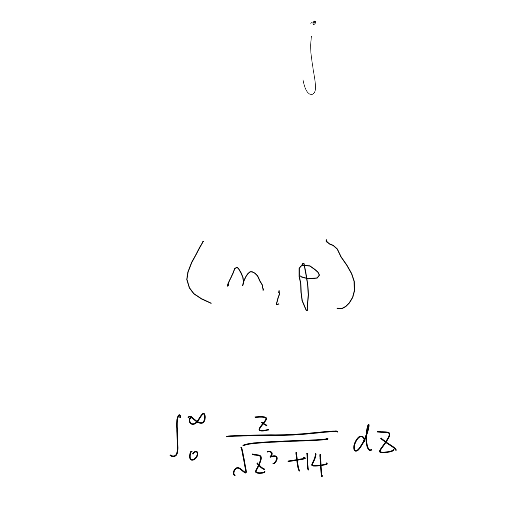 j
(m, p)
∫_0^∞ z/√(z^3+14) dz